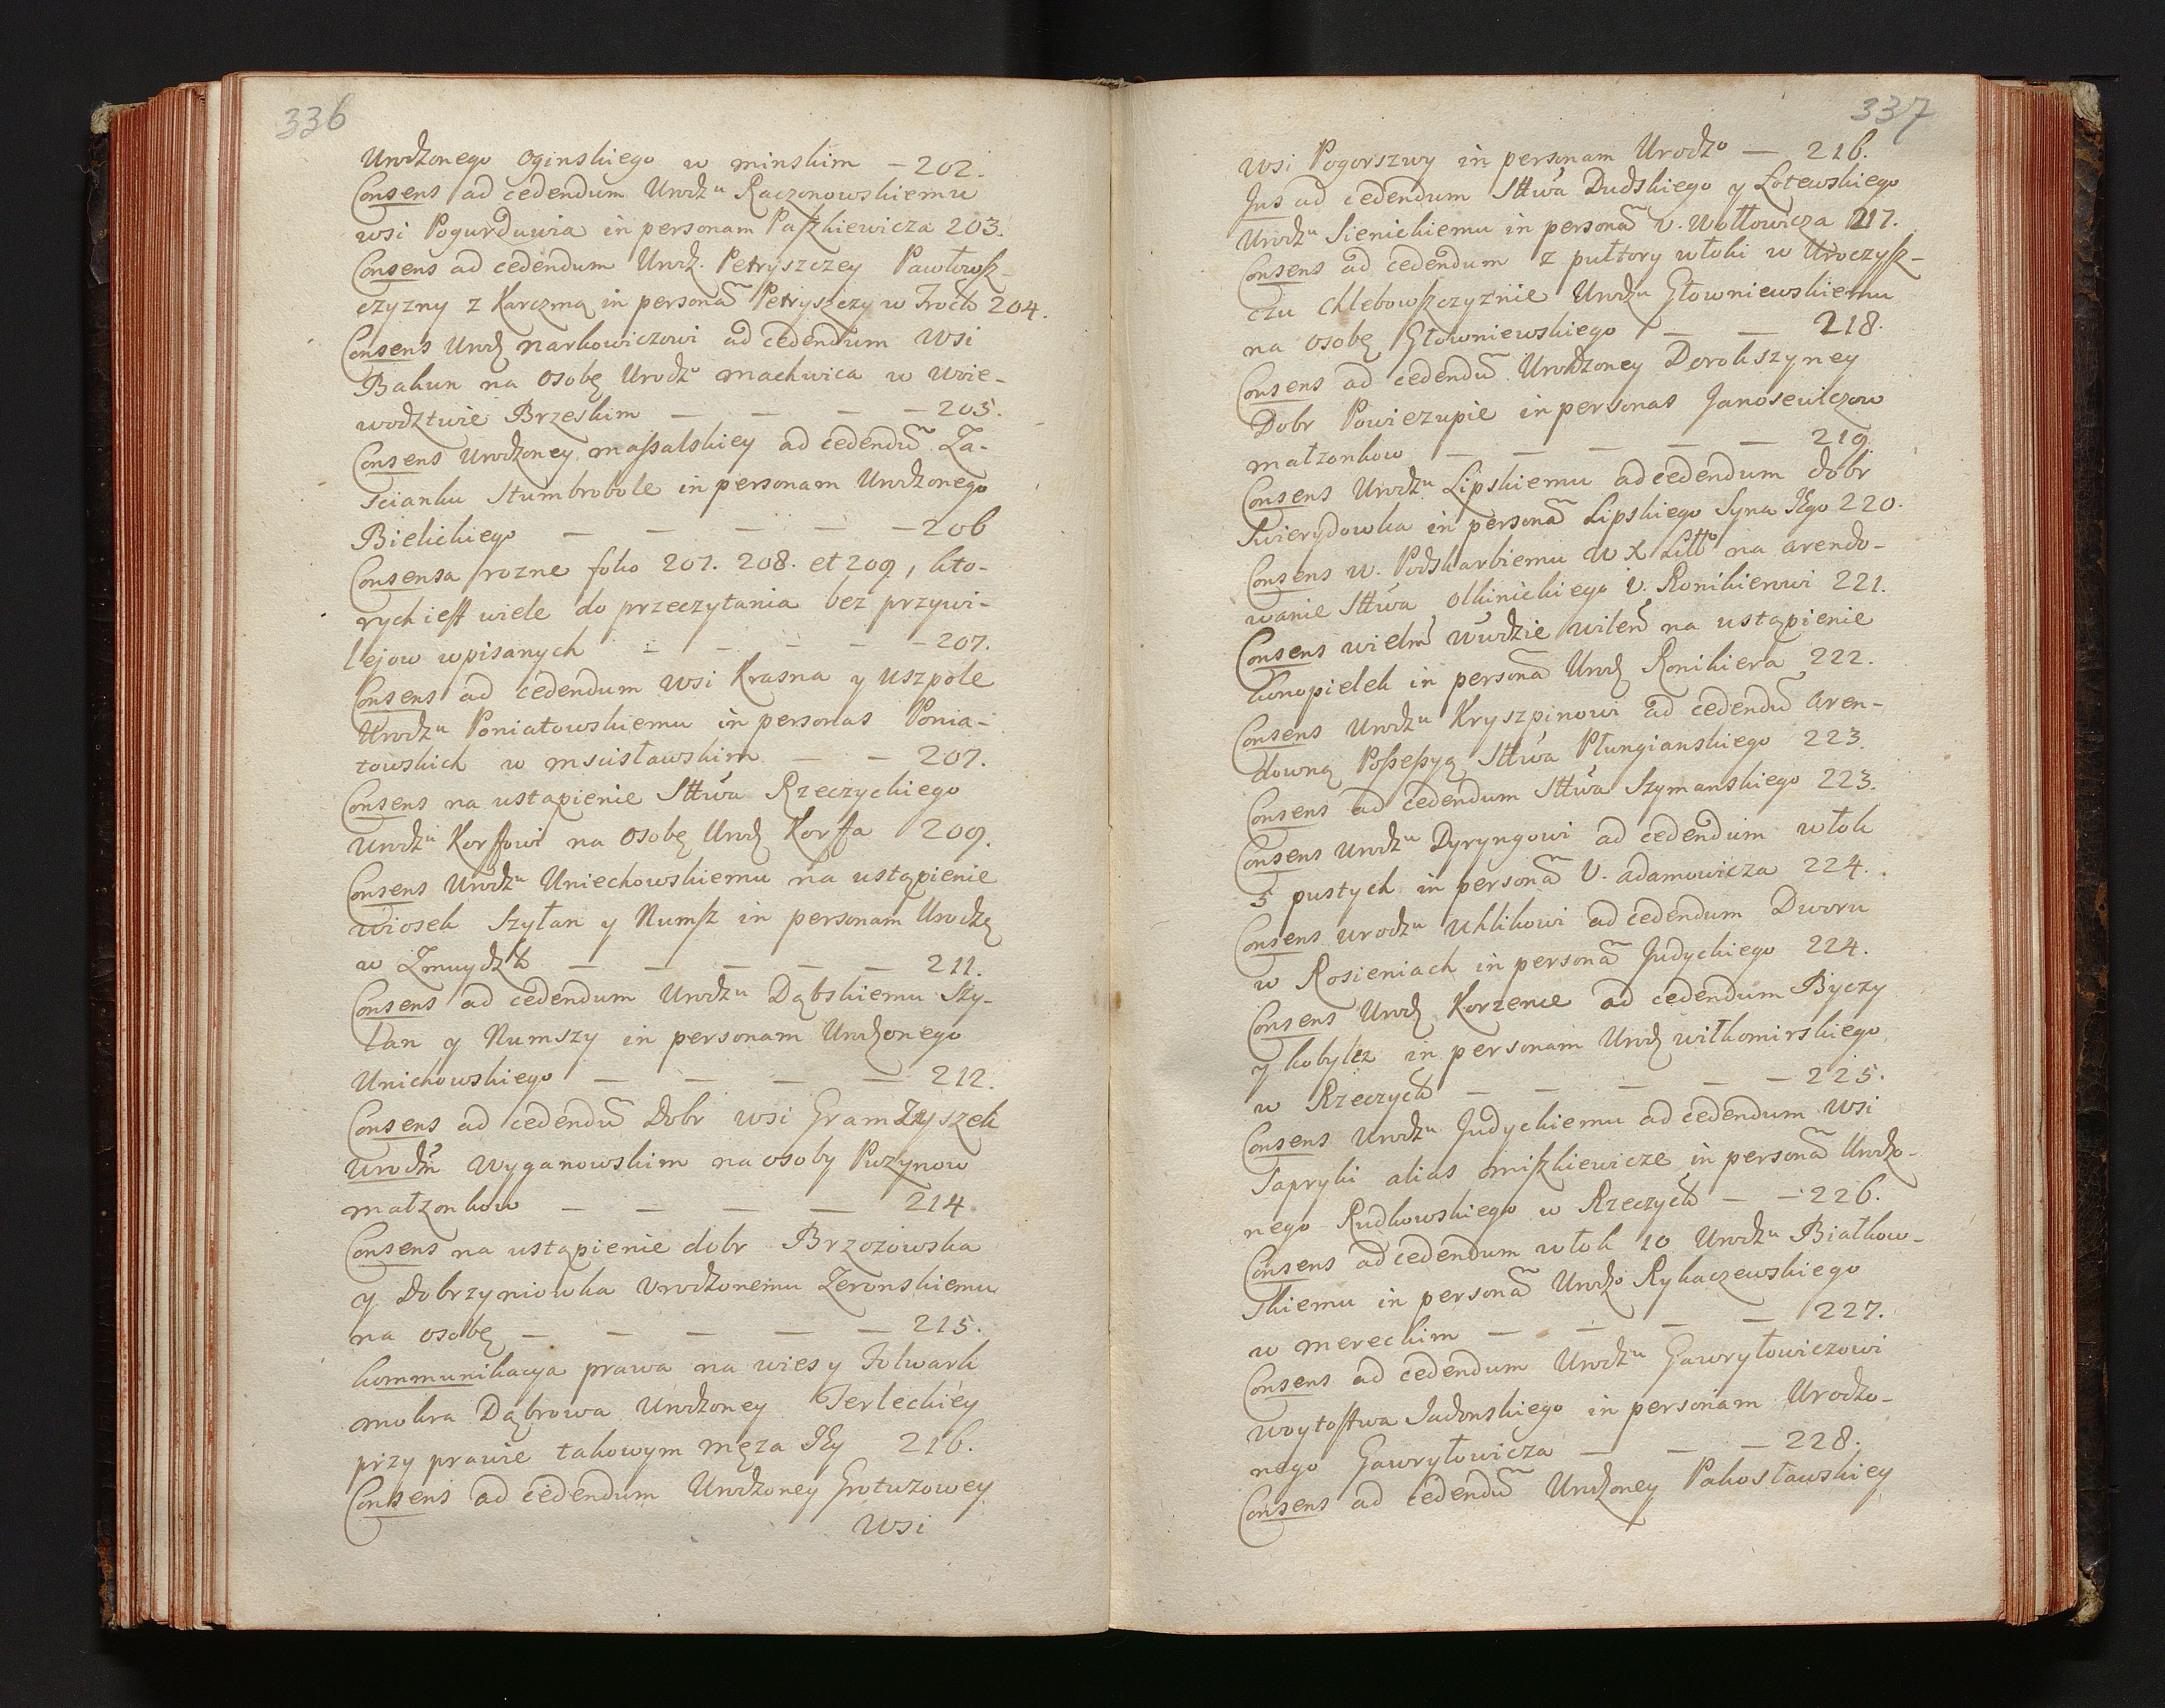 336
Urodzonego Oginskiego w minskim — 202.
Consens ad cedendum Urodzu Raczonowskiemu
wsi Pogurduwia in personam Paszkiewicza 203.
Consens ad cedendum Urodz. Petryszczey Pawłowsz-
czyzny z Karczmą in personã Petryszczy w Trock 204.
Consens Urodz Narkowiczowi ad cedendum Wsi
Bakun na Osobę Urodzo machwica w Woie-
wodztwie Brzeskim — — — — 205.
Consens Urodzoney massalskiey ad cedendũ Za-
scianku Stumbrobole in personam Urodzonego
Bielickiego — — — — — 206
Consensa rozne folio 207. 208. et 209, kto-
rych iest wiele do przeczytania bez przywi-
lejow wpisanych — — — — — 207.
Consens ad cedendum Wsi Krasna y Uszpole
Urodzu Poniatowskiemu in personas Ponia-
towskich w mscisławskim — — 207.
Consens na ustąpienie Sttwa Rzeczyckiego
Urodzu Korffowi na Osobę Urodz Korffa 209.
Consens Urodzu Uniechowskiemu na ustąpienie
wiosek Szyłan y Numsz in personam Urodzę
w Zmuydzk — — — — — 211.
Consens ad cedendum Urodzu Dąbskiemu Szy-
łan y Numszy in personam Urodzonego
Unichowskiego — — — — 212.
Consens ad cedendũ Dobr wsi Gramzyszek
Urodzm Wyganowskim na osoby Puzynow
małzonkow — — — — 214.
Consens na ustąpienie dobr Brzozowska
y Dobrzyniowka Urodzonemu Zeronskiemu
na osobę — — — — — 215.
Kommunikacya prawa na wies y Folwark
mokra Dąbrowa Urodzoney Terleckiey
przy prawie takowym męza Jey 216.
Consens ad cedendum Urodzoney Grotuzowey
Wsi
337
Wsi Pogorszwy in personam Urodzo — 216.
Jus ad cedendum Sttwa Dudskiego y Lotewskiego
Urodzu Sienickiemu in personã U. Wołłowicza 217.
Consens ad cedendum z pułtory włoki w Uroczysz-
czu Chlebowszczyznie Urodzu Głowniewskiemu
na osobę Głowniewskiego — — 218.
Consens ad cedendũ Urodzoney Dorohszyney
Dobr Powiezupie in personas Janosewiczow
małzonkow — — — — — 219.
Consens Urodzu Lipskiemu ad cedendum dobr
Swierydowka in personã Lipskiego Syna Jego 220.
Consens W. Podskarbiemu W X Litto na arendo-
wanie Sttwa Olkinickiego U. Ronikierowi 221.
Consens wielm̃ wwdzie wileñ na ustąpienie
Konopielek in personã Urodz Ronikiera 222.
Consens Urodzu Kryszpinowi ad cedendũ aren-
downą Possessyą Sttwa Płungianskiego 223.
Consens ad cedendum Sttwa Szymanskiego 223.
Consens Urodzu Dyryngowi ad cedendum włok
5 pustych in personã U. adamowicza 224.
Consens urodzu Uhlikowi ad cedendum Dworu
w Rosieniach in personã Judyckiego 224.
Consens Urodz Korzenie ad cedendum Byczy
y kobylcz in personam Urodz wiłkomirskiego
w Rzeczyck — — — — — 225.
Consens Urodzu Judyckiemu ad cedendum wsi
Sapryki alias miszkiewicze in personã Urodzo-
nego Rudkowskiego w Rzeczyck — — 226.
Consens ad cedendum włok 10 Urodzu Białkow-
skiemu in personã Urodzo Rykaczewskiego
w mereckim — — — — 227.
Consens ad cedendum Urodzu Gawryłowiczowi
Woytostwa Jadonskiego in personam Urodzo-
nego Gawryłowicza — — — 228.
Consens ad cedendũ Urodzoney Pakosławskiey